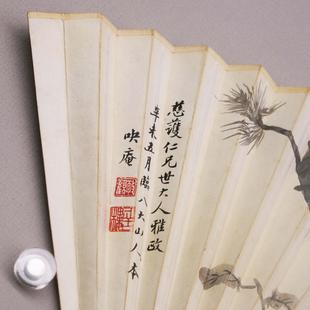 慈護仁兄世大人雅政
辛未五月臨八大山人本
映庵